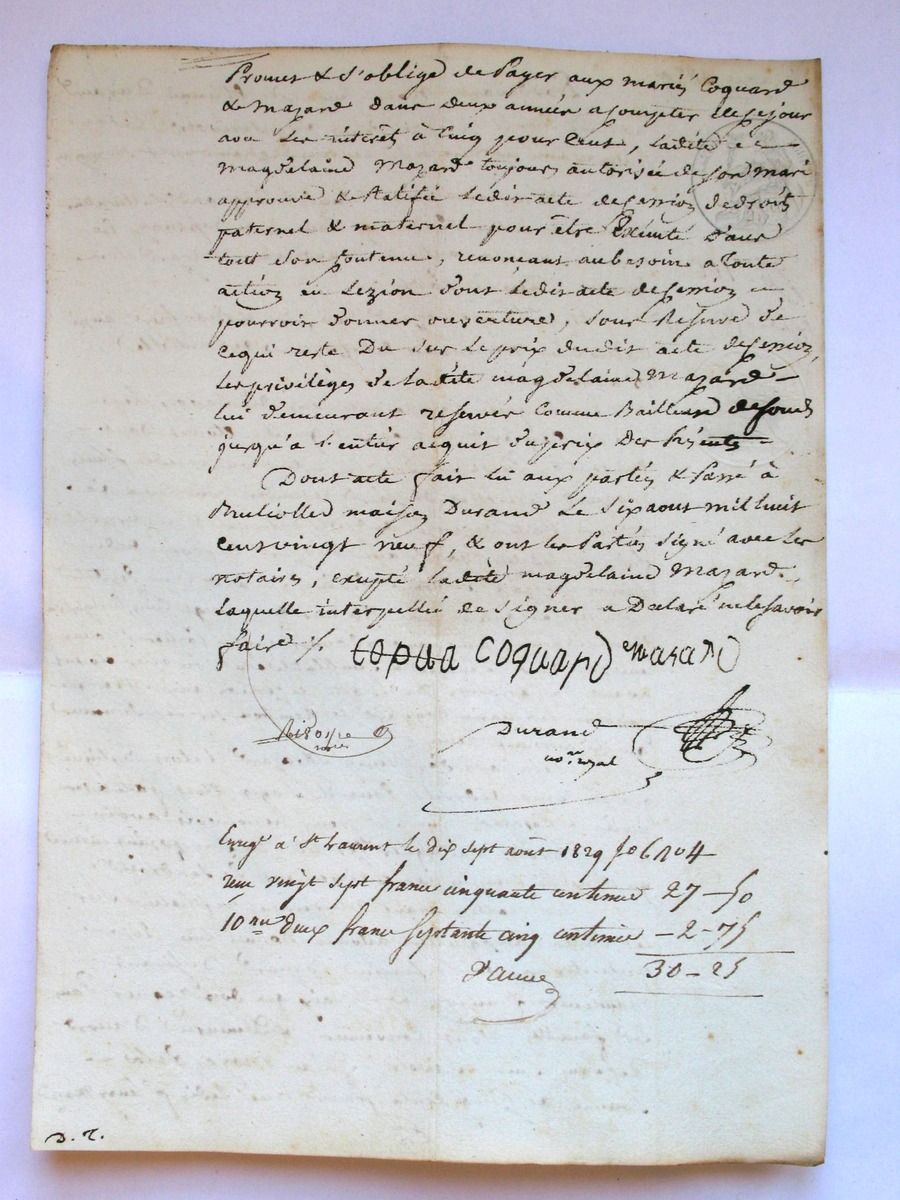 Promet & s'oblige de Payer aux mariés Coquard
& mazard dans deux années a compter de ce jour
avec les intérêt à Cinq pour Cent, Ladite
magdelaine Mazard toujours autorisée de son mari
approuve & Ratifie Ledit acte de cession de droits
paternel & maternel pour être Exécuté Dans
tout son Contenu, renoncant au besoin a toute
action en Lezion dont Ledit acte de cession
pourroit donner ouverture, sous Reserve de
ce qui reste Du sur Le prix dudit acte de cession,
Les privilèges de Ladite magdelaine Mazard
lui demeurant reservés Comme Bailleur de fonds
jusqu'a l'entier acquit du prix Des
Dont acte fait lu aux parties & Passé à
maison Durand Le Six aout mil huit
cent vingt neuf, & ont les Parties signé avec Les
notaires, excepté ladite magdelaine Mazard
Laquelle interpellée de signer a Déclaré ne le savoir
faire ./. Coquard mazard
Durand
no.re royal
Enreg.é a St Laurent le dix sept août 1829 fo 6
reçu vingt sept francs cinquante centimes 27-50
10me deux francs septante cinq centimes -2-75
30-25
D. T.